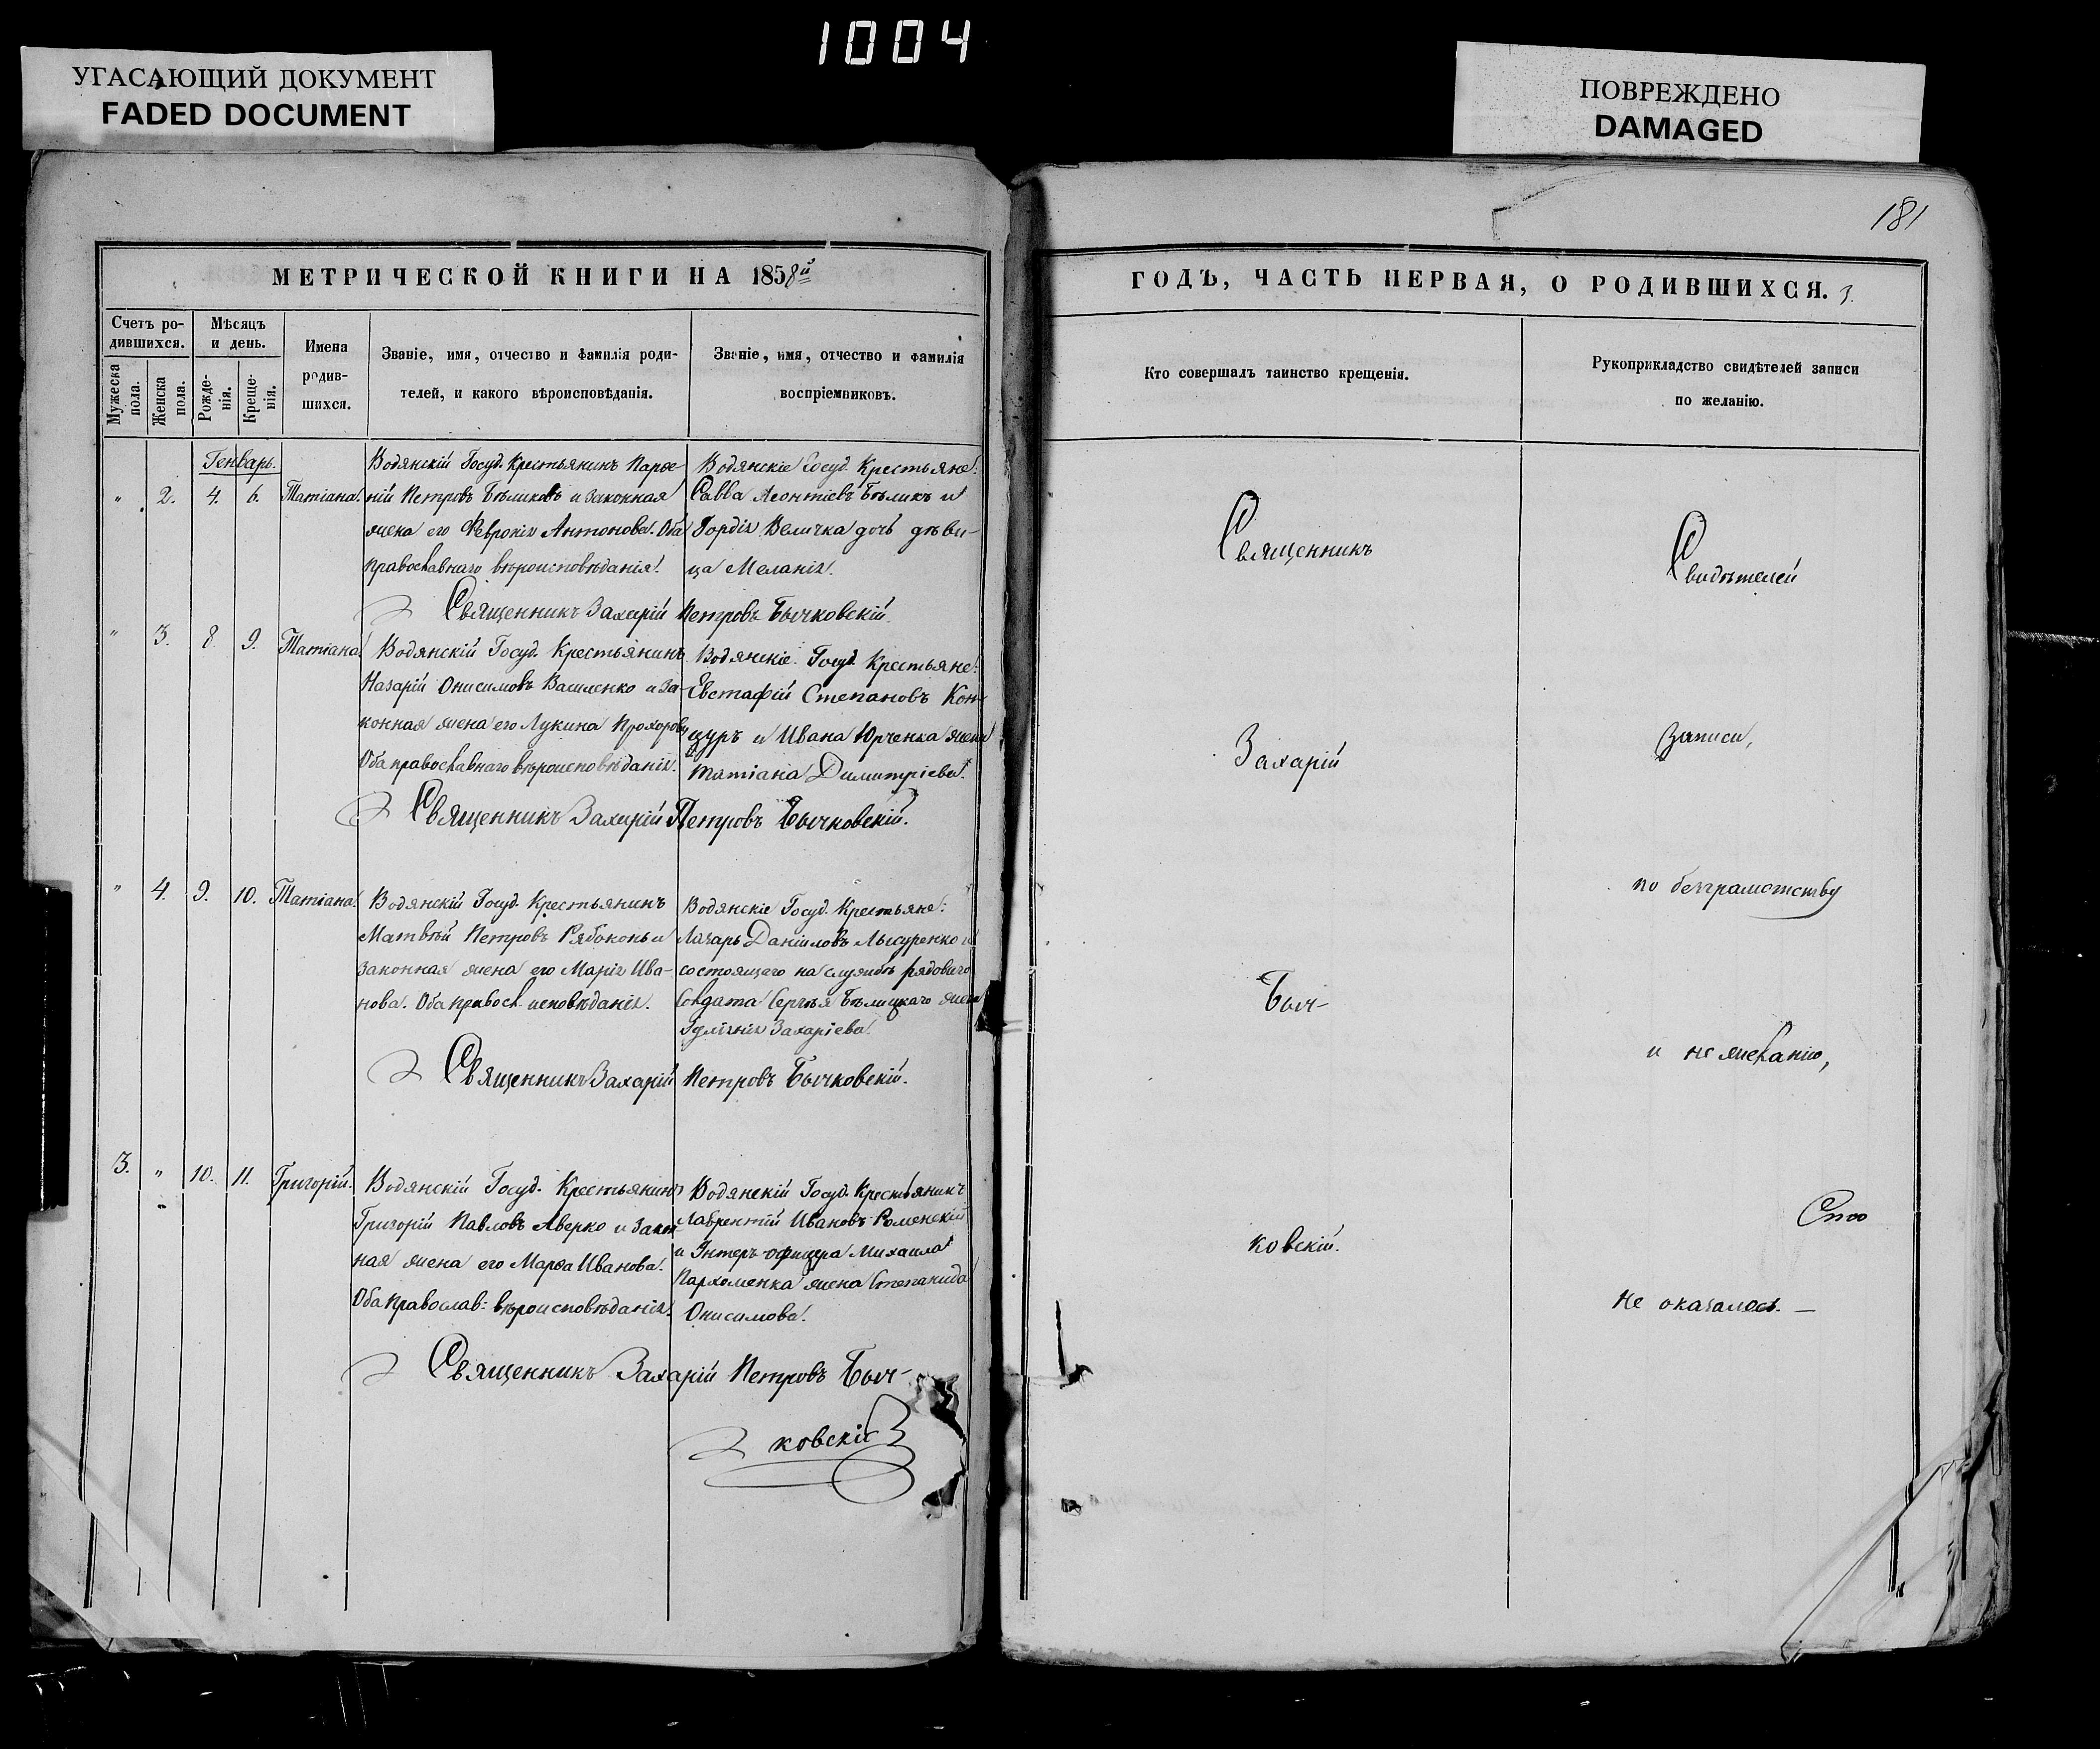 1004
УГАСАЮЩИЙ ДОКУМЕНТ
FADED DOCUMENT
ПОВРЕЖДЕНО
DAMAGED
181
МЕТРИЧЕСКОЙ КНИГИ НА 1858й
Счетъ ро-
дившихся.
Мужеска
пола.
Женска
пола.
Мѣсяцъ
и день.
Рожде-
нія.
Креще-
нія.
Имена
родив-
шихся.
Званіе, имя, отчество и фамилія роди-
телей, и какого вѣроисповѣданія.
Званіе, имя, отчество и фамилія
воспріемниковъ.
Генварь.
" 2. 4. 6. Татіана.
Водянскій Госуд. Крестьянинъ Парѳе-
ній Петровъ Бѣликовъ и законная
жена его Феврокія Антонова. Оба
православнаго вѣроисповѣданія.
Водянскіе Госуд. Крестьяне:
Савва Леонтіевъ Бѣликъ и
Гордія Величка дочь дѣви-
ца Меланія.
Священникъ Захарій Петровъ Бычковскій.
" 3. 8. 9. Татіана.
Водянскій Госуд. Крестьянинъ
Назарій Онисимовъ Василенко и за-
конная жена его Лукина Прохорова
Оба православнаго вѣроисповѣданія.
Водянскіе Госуд. Крестьяне:
Евстафій Степановъ Кон-
цуръ и Ивана Юрченка жена
Татіана Димитріева.
Священникъ Захарій Петровъ Бычковскій.
" 4. 9. 10. Татіана.
Водянскій Госуд. Крестьянинъ
Матвѣй Петровъ Рябоконь и
законная жена его Марія Ива-
нова. Оба правосл. исповѣданія.
Водянскіе Госуд. Крестьяне:
Лазарь Даніиловъ Лысуренко и
состоящаго на службѣ рядоваго
Солдата Сергѣя Бѣлицкаго жена
Захаріева.
Священникъ Захарій Петровъ Бычковскій.
3. " 10. 11. Григорій.
Водянскій Госуд. Крестьянинъ
Григорій Павловъ Аверко и закон-
ная жена его Марѳа Иванова.
Оба православ: вѣроисповѣданія.
Водянскій Госуд. Крестьянинъ
Лаврентій Ивановъ Роменскій
и Унтеръ-офицера Михаила
Пархоменка жена Степанида
Онисимова.
Священникъ Захарій Петровъ Быч-
ковскій
ГОДЪ, ЧАСТЬ ПЕРВАЯ, О РОДИВШИХСЯ. 3.
Кто совершалъ таинство крещенія.
Рукоприкладство свидѣтелей записи
по желанію.
Священникъ
Захарій
Быч-
ковскій.
Свидѣтелей
записи,
по безграмотству
и не желанію,
Не оказалось. —